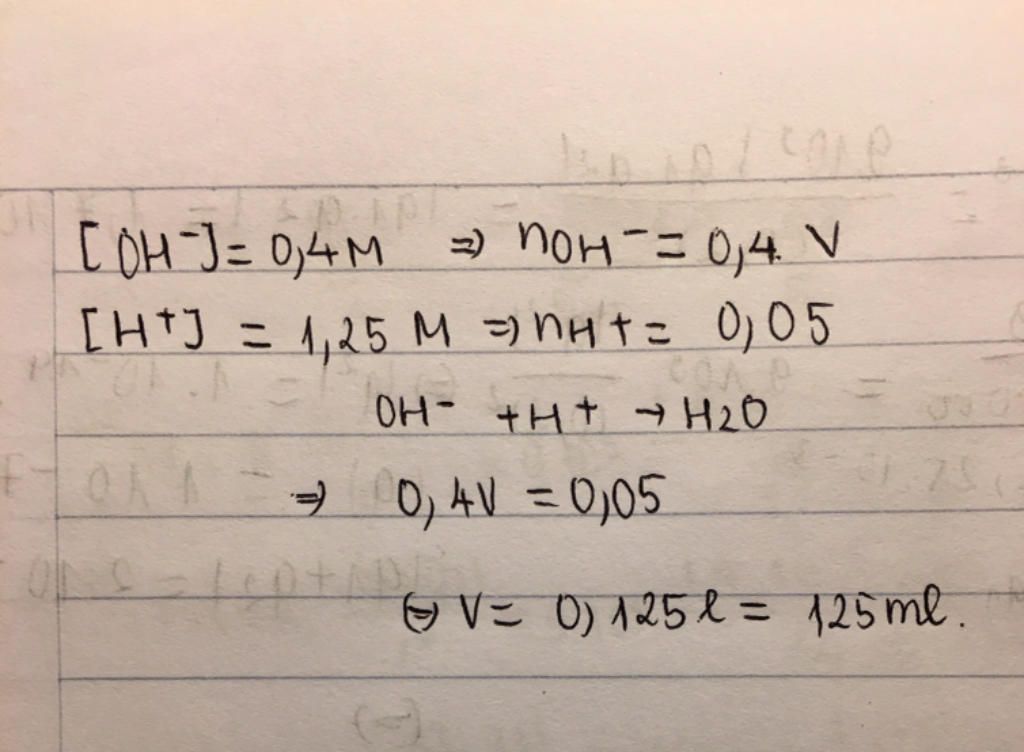 [OH⁻] = 0,4M ⇒ nOH⁻ = 0,4. V
[H⁺] = 1,25 M ⇒ nH+ = 0,05
OH⁻ + H+ → H2O
⇒ 0,4V = 0,05
⇔ V = 0,125 l = 125ml.